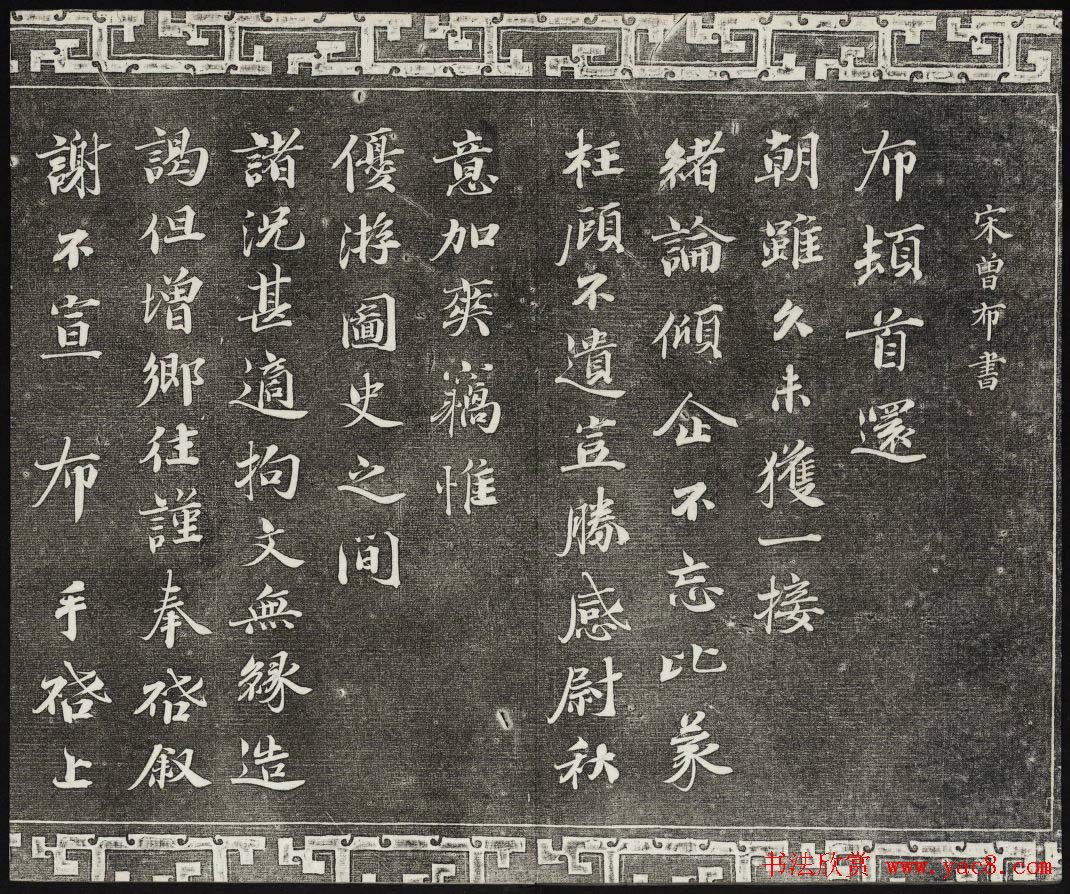 宋曾布書
布頓首還
朝雖久未獲一接
緒論傾企不忘比蒙
枉顧不遺豈勝感尉秋
意加爽竊惟
優游圖史之間
諸況甚適拘文無緣造
謁但增鄉往謹奉啓叙
謝不宣 布 手啓上
书法欣赏 www.yac8.com